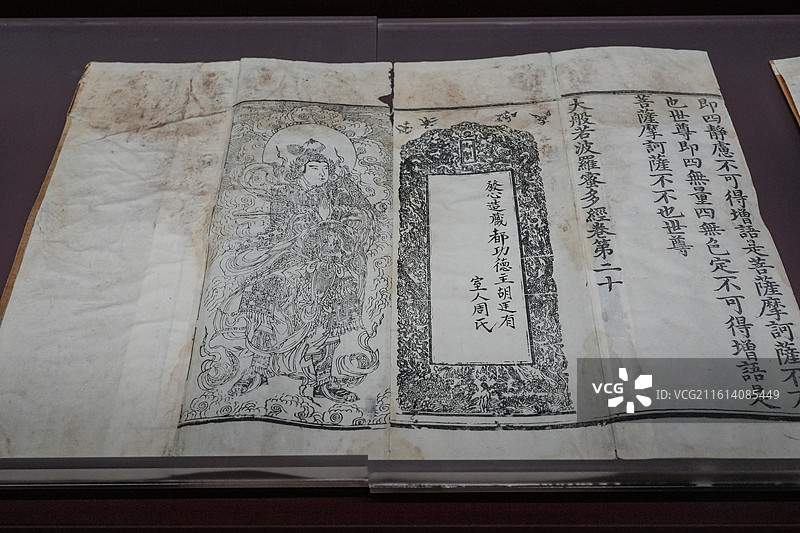 即四靜慮不可得增語是菩薩摩訶薩不
即四無量四無色定不可得增語是
也世尊
菩薩摩訶薩不不也世尊
大般若波羅蜜多經卷第二十
發心造藏都功德主胡廷有
室人周氏
VCG
VCG211614085449